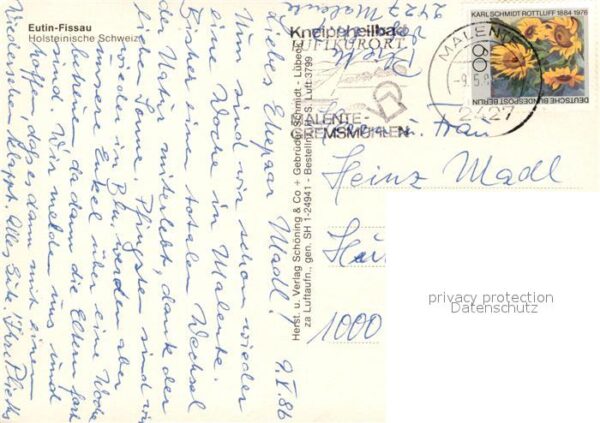 Eutin-Fissau
Holsteinische Schweiz
9.V.86
Liebes Ehepaar Madl!
Nun sind wir schon wieder
eine Woche in Malente.
Bisher einen totalen Wechsel
der Natur miterlebt, dank der
lieben Sonne. Pfingsten sind wir
wieder in Bln., werden aber
betreuen
Enkel über eine Woche
da dann die Eltern fort
sind. Wir melden uns und
hoffen, daß es dann mit einem
Wiedersehen klappt. Alles Gute! Ihre Plieths
Herst. u. Verlag Schöning & Co + Gebrüder Schmidt - Lübeck
za Luftaufn., gen. SH 1-24941 - Bestellnr. S. Luft 3799
Plieth
2427 Malente
Kneippheilbad
LUFTKURORT
MALENTE-
GREMSMÜHLEN
MALENTE
-9.5.8
2427
KARL SCHMIDT ROTTLUFF 1884-1976
60
DEUTSCHE BUNDESPOST BERLIN
u. Frau
Heinz Madl
1000
privacy protection
Datenschutz